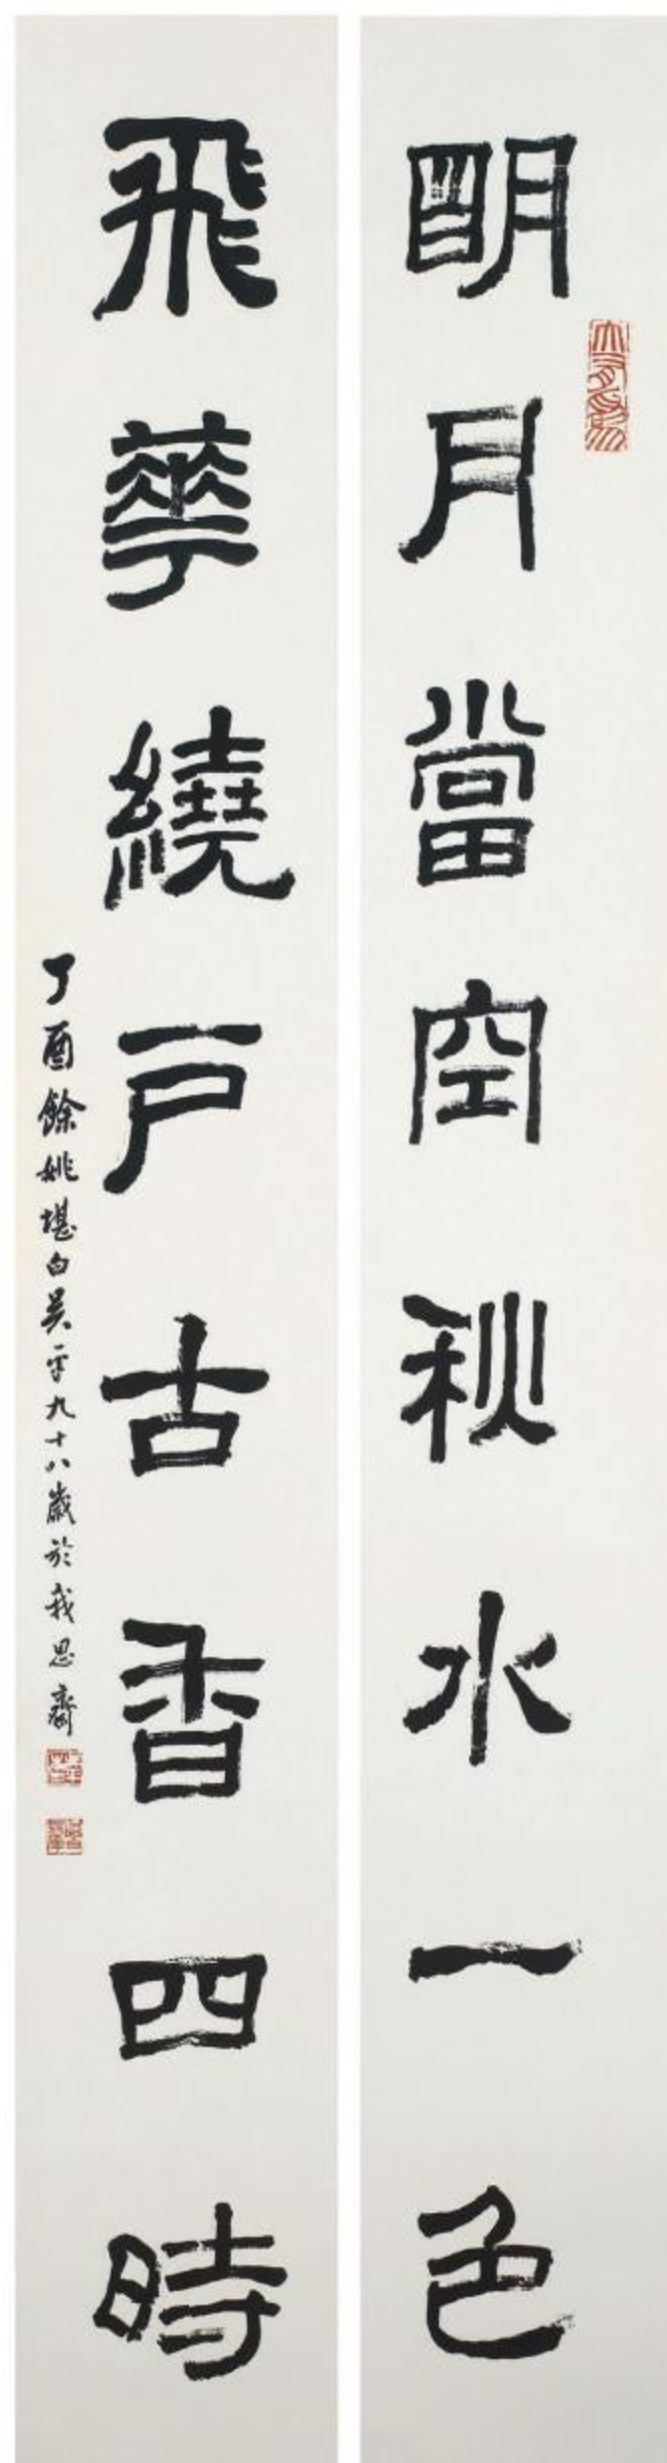 明月當空秋水一色
飛華繞戶古香四時
丁酉餘姚堪白吴平九十八歲於我思齋